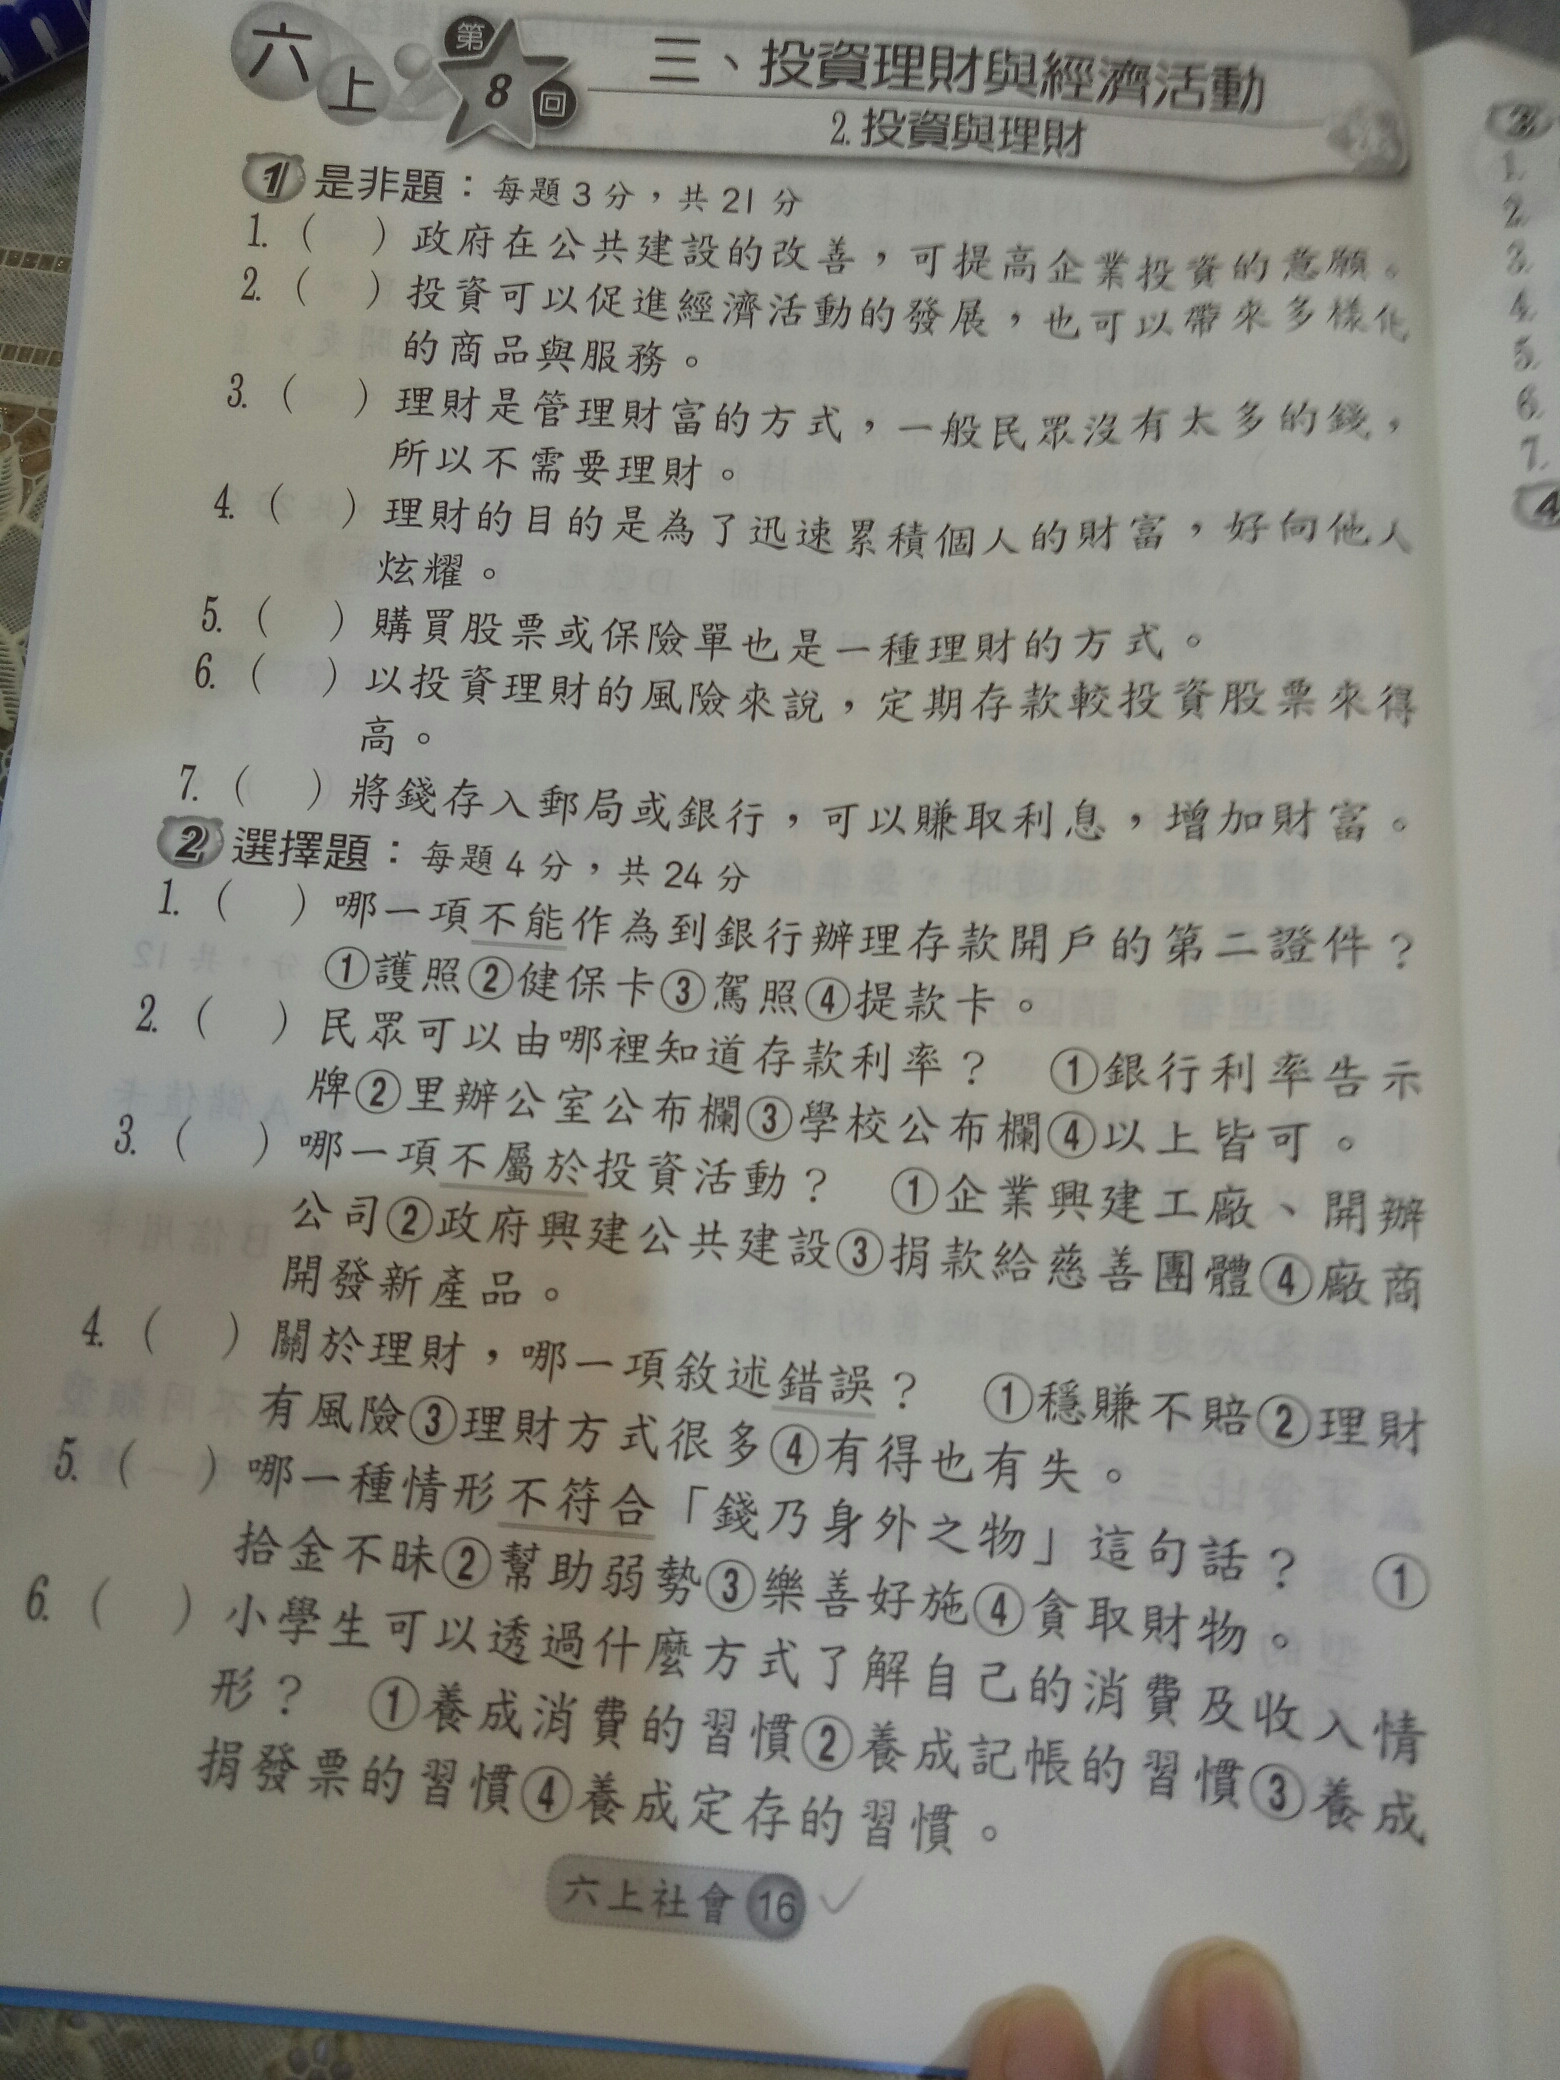 六上 第8回 三、投資理財與經濟活動
2.投資與理財
1 是非題：每題3分，共21分
1.（　）政府在公共建設的改善，可提高企業投資的意願。
2.（　）投資可以促進經濟活動的發展，也可以帶來多樣化
的商品與服務。
3.（　）理財是管理財富的方式，一般民眾沒有太多的錢，
所以不需要理財。
4.（　）理財的目的是為了迅速累積個人的財富，好向他人
炫耀。
5.（　）購買股票或保險單也是一種理財的方式。
6.（　）以投資理財的風險來說，定期存款較投資股票來得
高。
7.（　）將錢存入郵局或銀行，可以賺取利息，增加財富。
2 選擇題：每題4分，共24分
1.（　）哪一項不能作為到銀行辦理存款開戶的第二證件？
①護照②健保卡③駕照④提款卡。
2.（　）民眾可以由哪裡知道存款利率？　①銀行利率告示
牌②里辦公室公布欄③學校公布欄④以上皆可。
3.（　）哪一項不屬於投資活動？　①企業興建工廠、開辦
公司②政府興建公共建設③捐款給慈善團體④廠商
開發新產品。
4.（　）關於理財，哪一項敘述錯誤？　①穩賺不賠②理財
有風險③理財方式很多④有得也有失。
5.（　）哪一種情形不符合「錢乃身外之物」這句話？　①
拾金不昧②幫助弱勢③樂善好施④貪取財物。
6.（　）小學生可以透過什麼方式了解自己的消費及收入情
形？　①養成消費的習慣②養成記帳的習慣③養成
捐發票的習慣④養成定存的習慣。
六上社會 16
2
1.
2.
3.
4.
5.
6.
7.
4